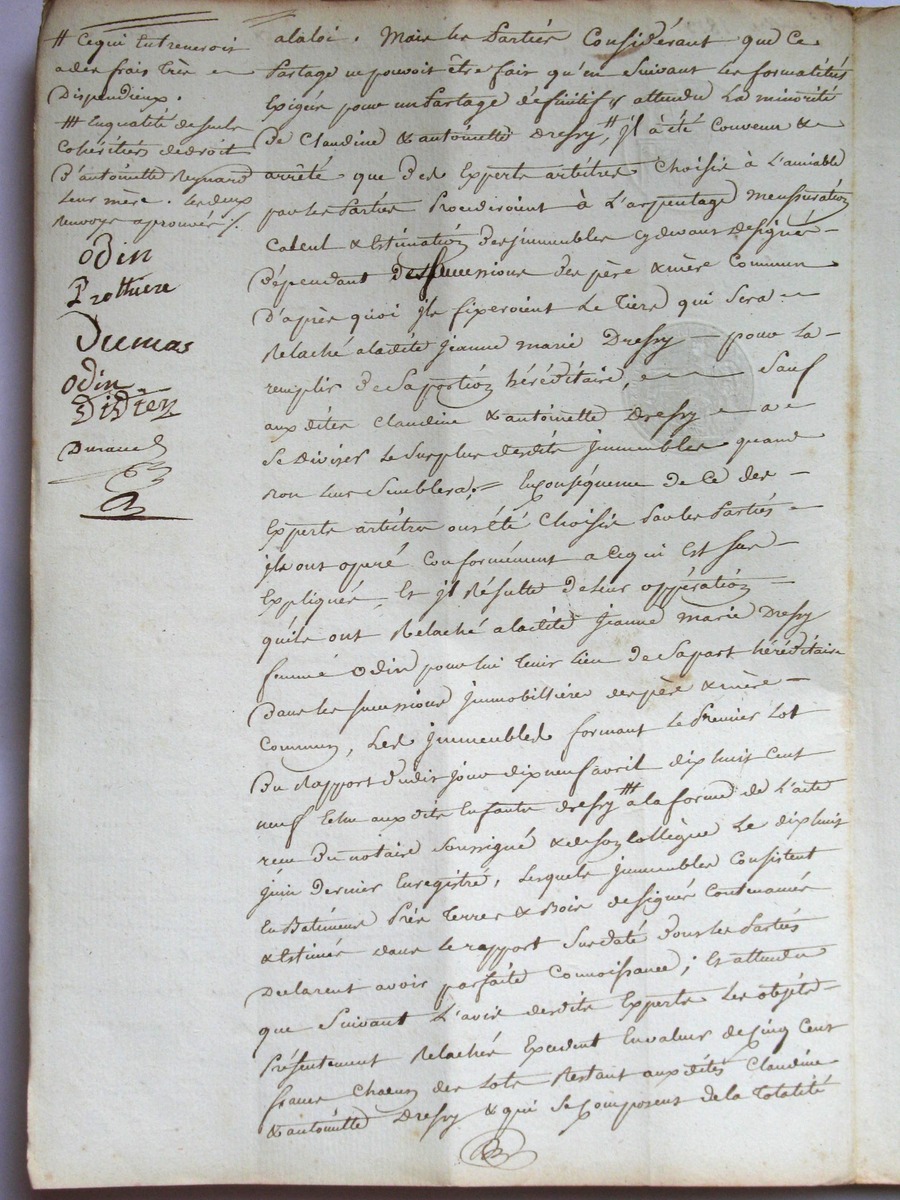 # Ce qui Entreneroit
a des frais très
Dispendieux.
### En qualité de seuls
Cohéritiers de droit
D'antoinette Reynard
leur mère. Les deux
Renvoys aprouvés ./.
Odin
Prothiere
Dumas
Odin
Didier
Durand
a la loi. Mais les Parties Considérant que Ce
Partage ne pouvoit être fait qu'en Suivant les formalités
Exigées pour un Partage définitif & attendu La minorité
De Claudine & antoinette Dressy, # jl a été Convenu &
arrêté que Des Experts arbitres Choisis à L'amiable
par les Parties Procederoient à L'arpentage Mensuration
Calcul & Estimation Des jmmeubles cy devant designés
Dépendant Des Successions Des père & mère Commun
D'après quoi jls fixeroient Le Tiers qui Sera
Relaché a la dite jeanne marie Dressy pour la
remplir de Sa portion héréditaire, Sauf
aux dites Claudine & antoinette Dressy a
Se Diviser Le Surplus desdits jmmeubles quand
bon leur Semblera. En Conséquence de Ce des
Experts arbitres ont été Choisis Par les Parties
jls ont operé Conformément a Ce qui Est Sus
Expliqué, Et jl Résulte de leur oppération
qu'ils ont Relaché a la dite jeanne marie Dressy
femme Odin pour lui Tenir lieu de Sa part héréditaire
Dans les Successions jmmobilières des père & mère
Commun, Les jmmeubles formant Le Premier Lot
Du Rapport dudit jour dix neuf avril dix huit cent
neuf Echu aux dits Enfants Dressy ### a la forme de L'acte
recu du notaire Soussigné & de Son Collègue Le dix huit
juin dernier Enregistré, Lesquels jmmeubles Consistent
En Bâtiments Prés Terres & Bois designés Contenancés
& Estimés dans le rapport Sus daté dont les Parties
Declarent avoir parfaite Connoissance; Et attendu
que Suivant L'avis desdits Experts Les objets
Présentement Relachés Excedent En valeur de Cinq Cent
francs Chacun des Lots Restant aux dites Claudine
& antoinette Dressy & qui Se Composent de la Totalité